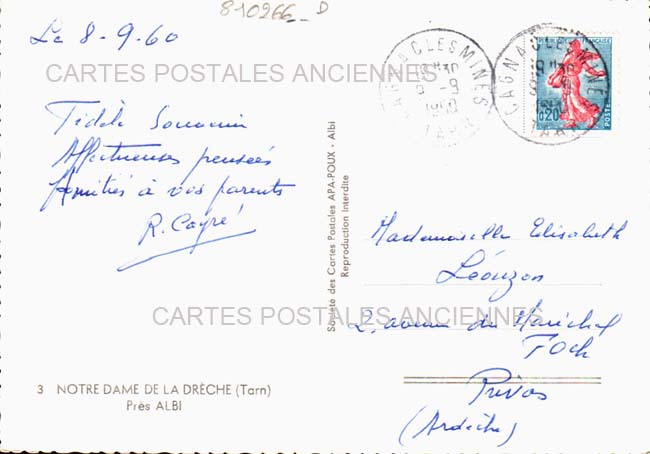 810266_D
Le 8-9-60
CARTES POSTALES ANCIENNES
Fidèle Souvenir
Affectueuses pensées
Amitiés à vos parents
R. Cayré
CARTES POSTALES ANCIENNES
3 NOTRE DAME DE LA DRÈCHE (Tarn)
Près ALBI
Société des Cartes Postales APA-POUX - Albi
Reproduction Interdite
CAGNAC LES MINES
TARN
CAGNAC LES MINES
TARN
FRANÇAISE
0,20
POSTES
Mademoiselle Elisabeth
Léouzon
2, avenue du Maréchal
FOCH
Privas
(Ardèche)